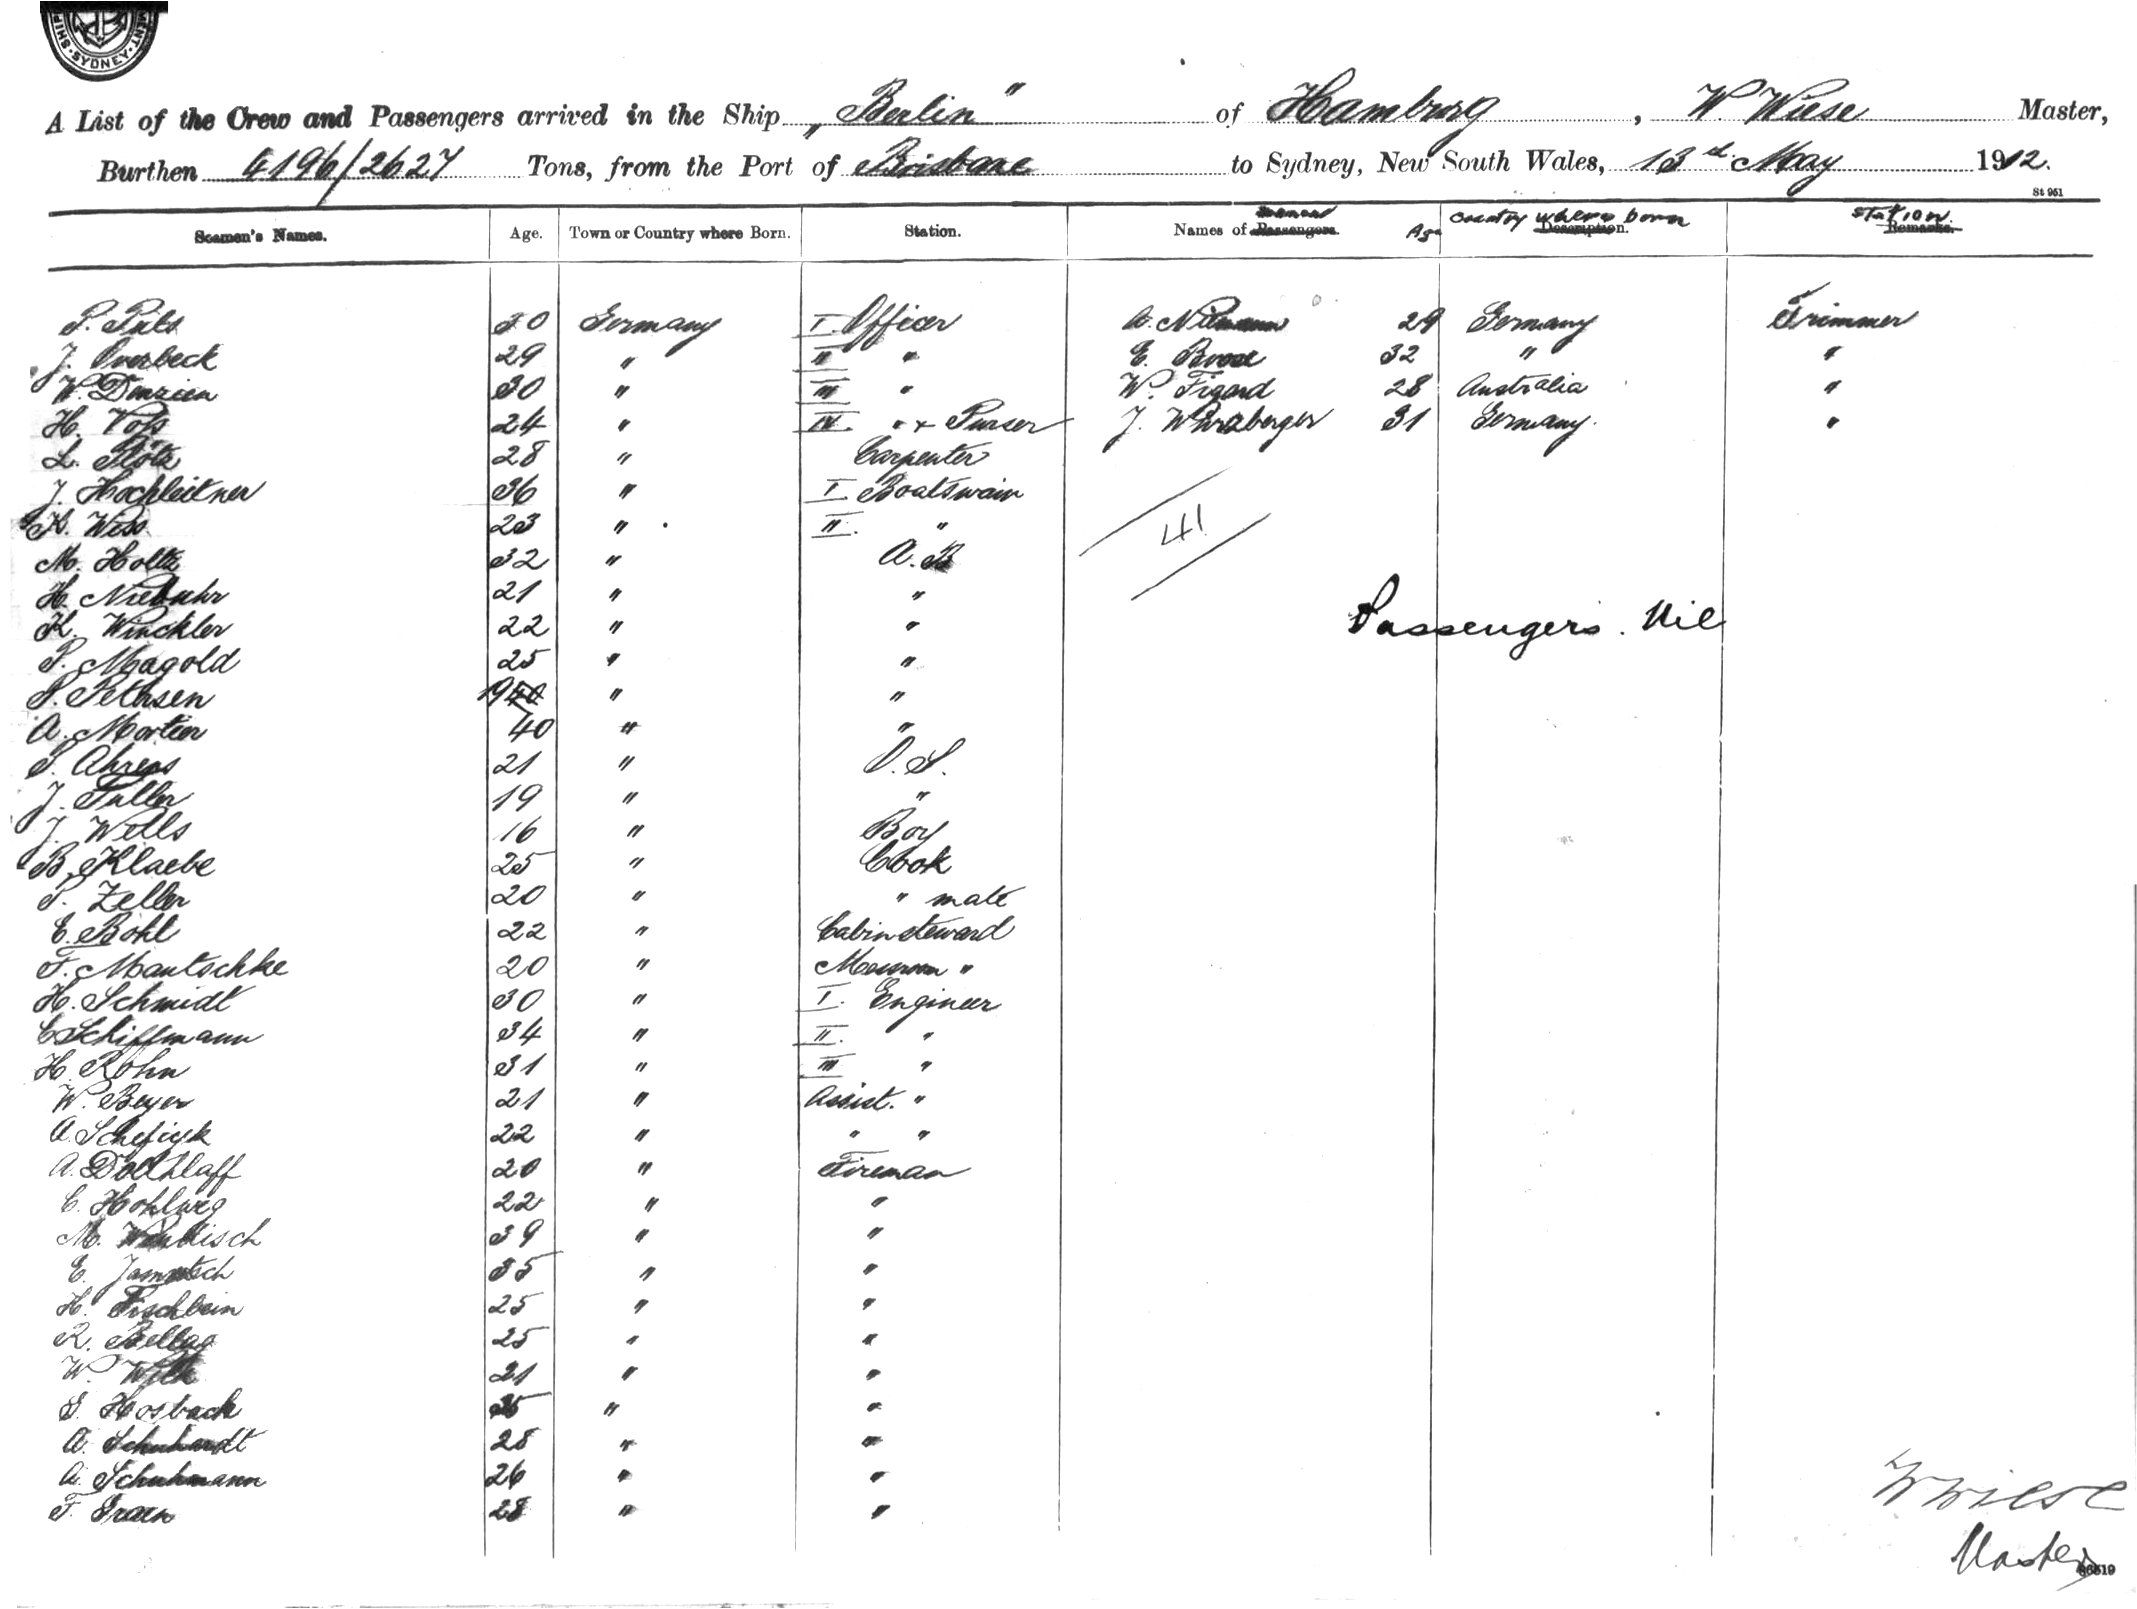 SHIP MENT · SYDNEY ·
A List of the Crew and Passengers arrived in the Ship „Berlin" of Hamburg, W. Wiese Master,
Burthen 4196/2627 Tons, from the Port of Brisbane to Sydney, New South Wales, 13th May 1912.
St 951
Seamen's Names. Age. Town or Country where Born. Station. Names of Passengers. Age Country where born Description. Station. Remarks.
P. Puls 30 Germany I. Officer A. Niemann 29 Germany Trimmer
J. Overbeck 29 " II " E. 32 " "
W. Denzien 30 " III " W. Figard 28 Australia "
H. Voß 24 " IV. " + Purser J. 31 Germany. "
L. Plötz 28 " Carpenter
J. Hochleitner 36 " I. Boatswain
K. Wiss 23 " II. "
41
M. Holtz 32 " A. B
H. Niebuhr 21 " "
K. Winckler 22 " "
Passengers. Nil
P. Magold 25 " "
P. Pethsen 19 40 " "
A. Mortier 40 " "
P. Ahrens 21 " O. S.
J. Fuller 19 " "
J. Wells 16 " Boy
B. Klaebe 25 " Cook
P. Zeller 20 " " mate
E. Bohl 22 " Cabinsteward
F. Mautschke 20 " Messroom "
H. Schmidt 30 " I. Engineer
C. Schiffmann 34 " II. "
H. Rohn 31 " III "
W. Beyer 21 " Assist. "
A. 22 " " "
A. 20 " Fireman
C. Hohlweg 22 " "
M. 39 " "
E. 35 " "
H. Fischbein 25 " "
R. 25 " "
W. Wilk 21 " "
Hosback 35 " "
A. Schuhardt 28 " "
A. Schuhmann 26 " "
F. 28 " "
W Wiese
Master